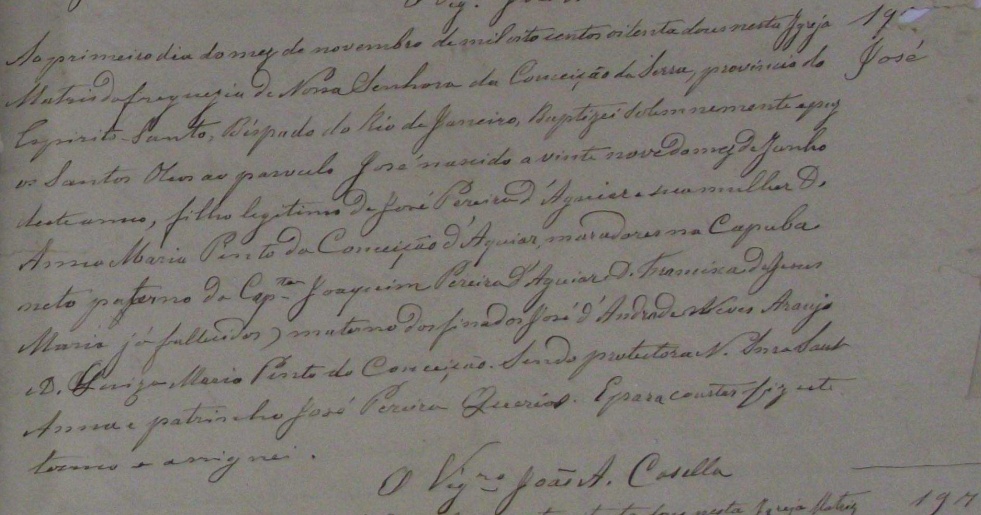 O Vig. João
Ao primeiro dia do mez de novembro de mil oito centos oitenta dous nesta Igreja
Matris da freguezia de Nossa Senhora da Conceição da Serra, provincia do
Espirito-Santo, Bispado do Rio de Janeiro, Baptizei Solemnemente e puz
os Santos Oleos ao parvulo José nascido a vinte nove do mez de Junho
deste anno, filho legitimo de José Pereira d'Aguiar e sua mulher D.
Anna Maria Pinto da Conceição d'Aguiar, moradores na Capuba
neto paterno do Cap.am Joaquim Pereira d'Aguiar D. Francisca de Jesus
Maria já fallecidos) materno dos finados José d'Andrade Neves Araujo
e D. Maria Pinto da Conceição. Sendo protectora N. Snra Sant
Anna e patrinho José Pereira Queriós. E para constar fiz este
termo e assignei.
O Vigro João A. Casella
José
nesta Igreja Matriz
197